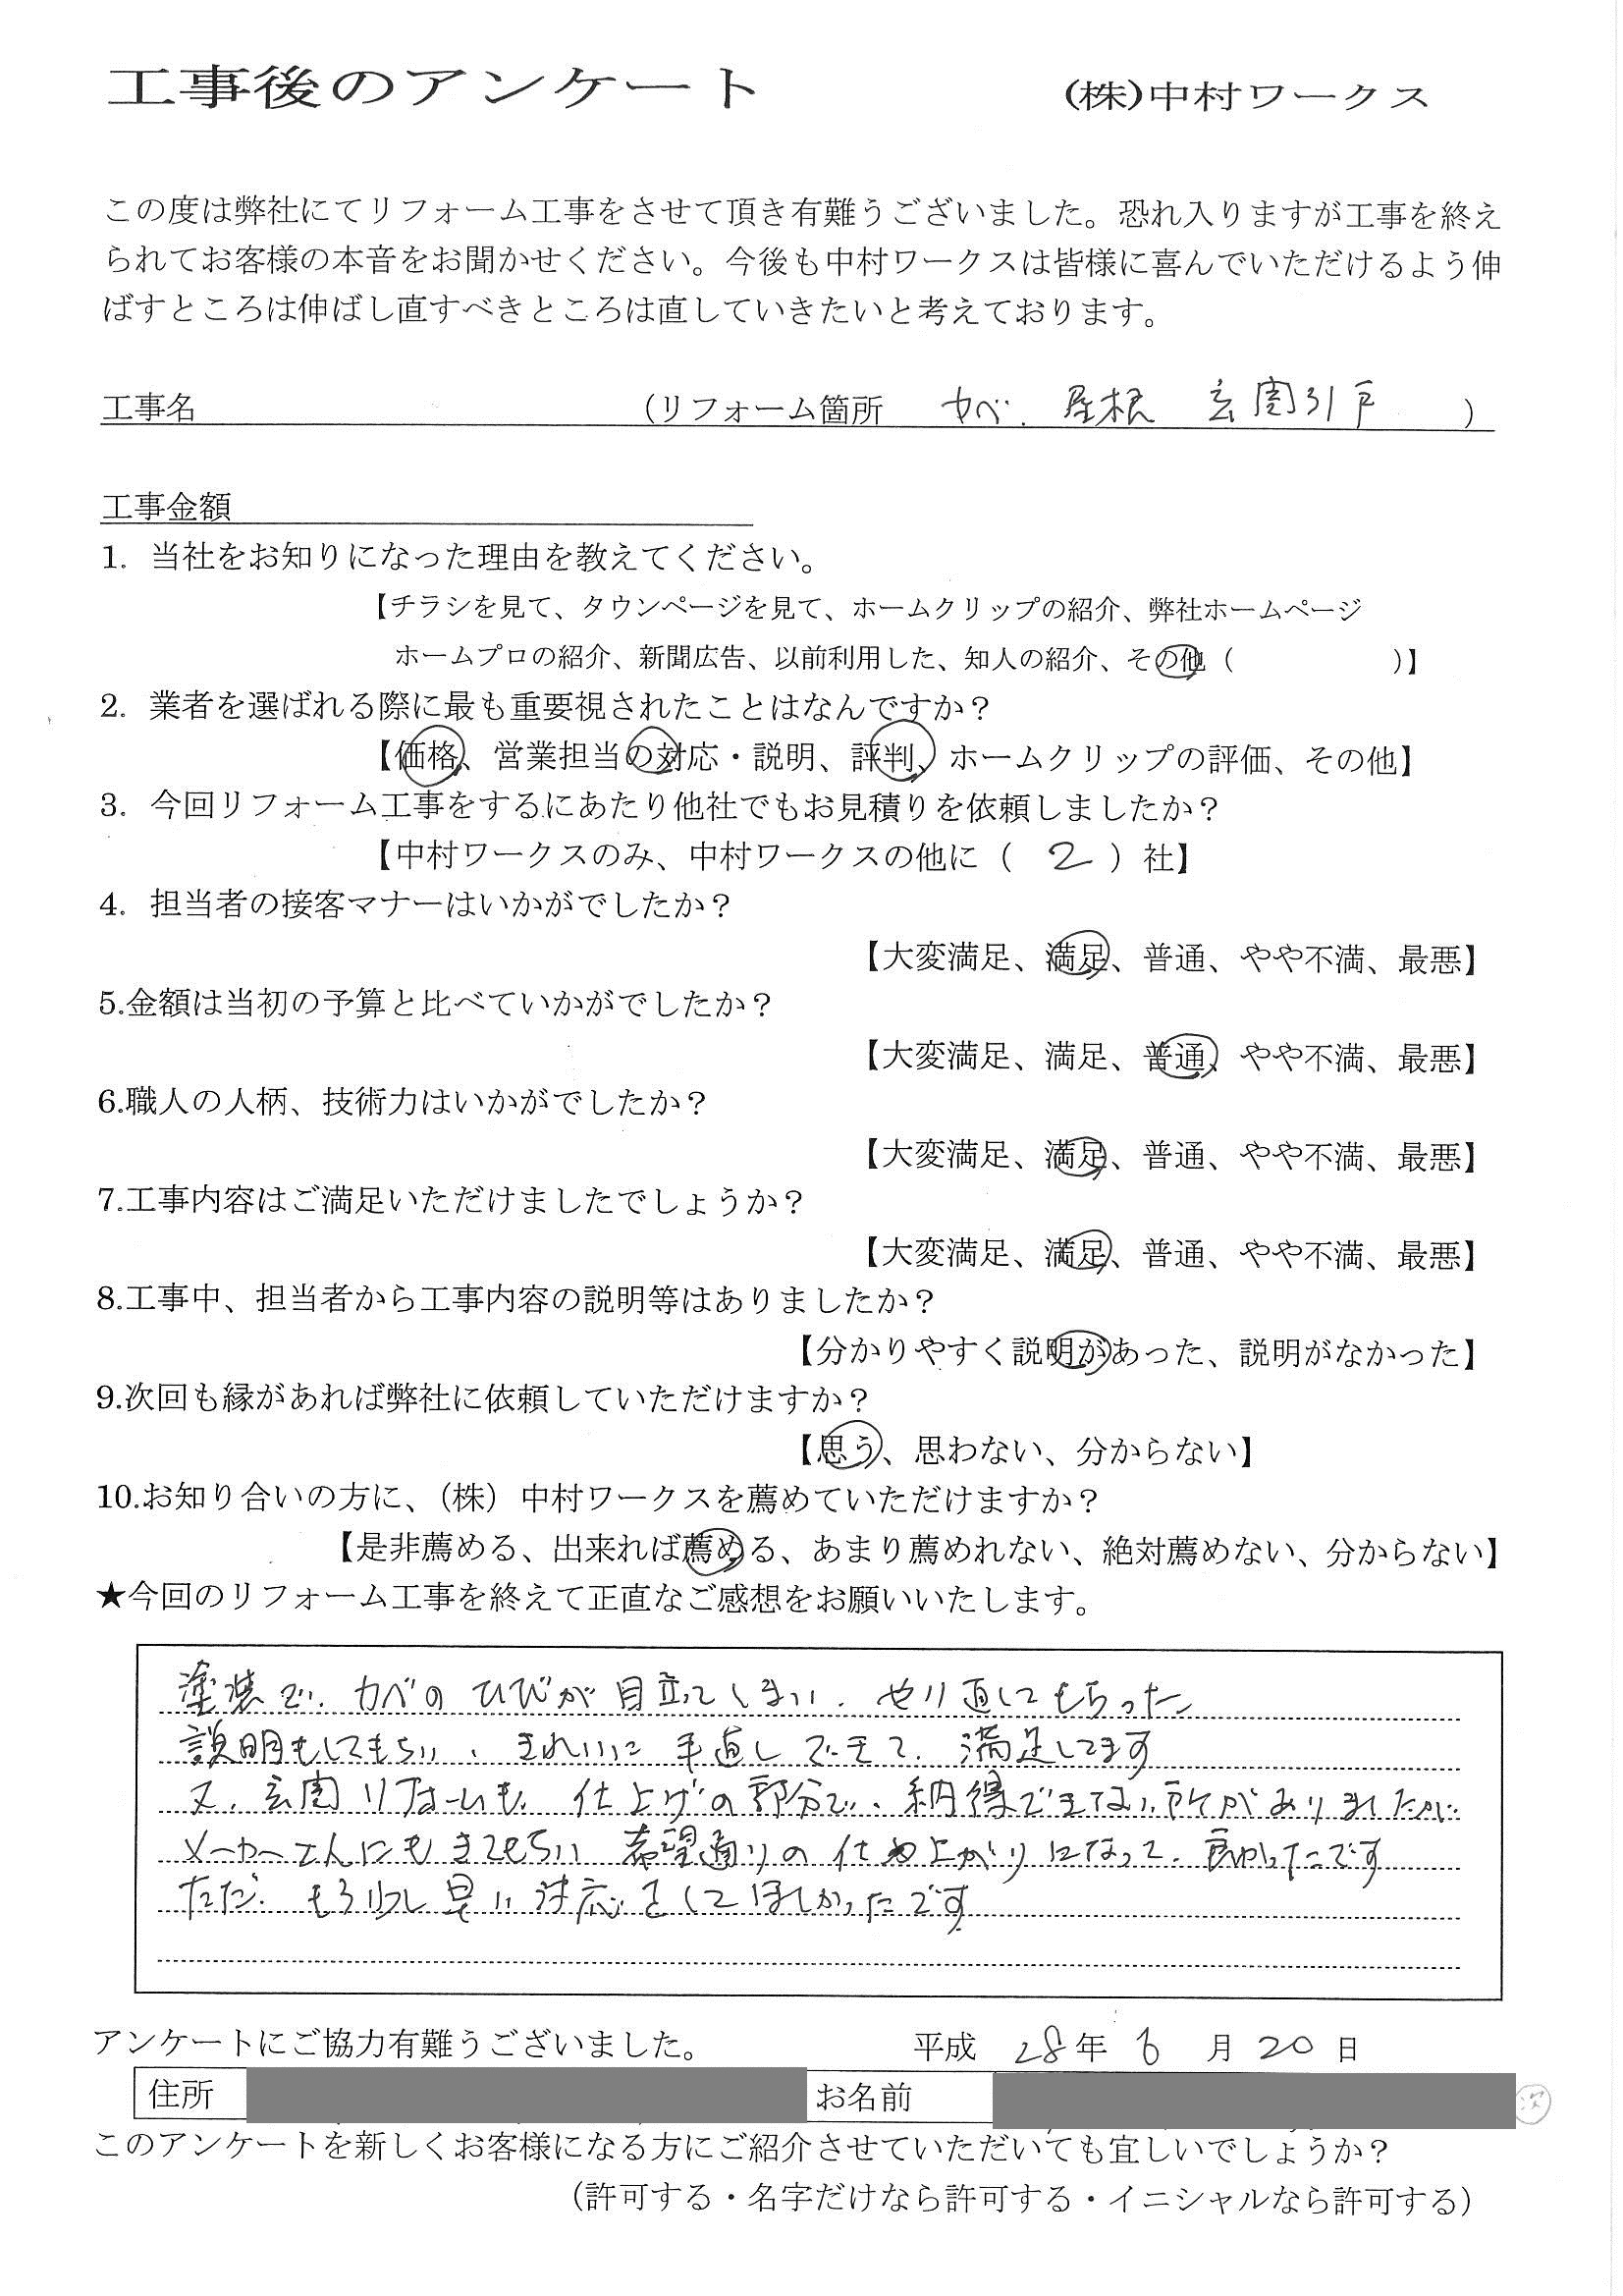 工事後のアンケート (株)中村ワークス
この度は弊社にてリフォーム工事をさせて頂き有難うございました。恐れ入りますが工事を終え
られてお客様の本音をお聞かせください。今後も中村ワークスは皆様に喜んでいただけるよう伸
ばすところは伸ばし直すべきところは直していきたいと考えております。
工事名 （リフォーム箇所 カベ. 屋根 玄関引戸 ）
工事金額
1. 当社をお知りになった理由を教えてください。
【チラシを見て、タウンページを見て、ホームクリップの紹介、弊社ホームページ
ホームプロの紹介、新聞広告、以前利用した、知人の紹介、その他（ )】
2. 業者を選ばれる際に最も重要視されたことはなんですか？
【価格、営業担当の対応・説明、評判、ホームクリップの評価、その他】
3. 今回リフォーム工事をするにあたり他社でもお見積りを依頼しましたか？
【中村ワークスのみ、中村ワークスの他に（ 2 ）社】
4. 担当者の接客マナーはいかがでしたか？
【大変満足、満足、普通、やや不満、最悪】
5.金額は当初の予算と比べていかがでしたか？
【大変満足、満足、普通、やや不満、最悪】
6.職人の人柄、技術力はいかがでしたか？
【大変満足、満足、普通、やや不満、最悪】
7.工事内容はご満足いただけましたでしょうか？
【大変満足、満足、普通、やや不満、最悪】
8.工事中、担当者から工事内容の説明等はありましたか？
【分かりやすく説明があった、説明がなかった】
9.次回も縁があれば弊社に依頼していただけますか？
【思う、思わない、分からない】
10.お知り合いの方に、（株）中村ワークスを薦めていただけますか？
【是非薦める、出来れば薦める、あまり薦めれない、絶対薦めない、分からない】
★今回のリフォーム工事を終えて正直なご感想をお願いいたします。
塗装で、カベのひびが目立ってしまい、やり直してもらった
説明もしてもらい、きれいに手直しできて、満足してます
又、玄関リフォームも、仕上げの部分で、納得できない所がありましたが、
メーカーさんにもきてもらい 希望通りの仕上がりになって、良かったです
ただ、もう少し早い対応をしてほしかったです
アンケートにご協力有難うございました。 平成 28 年 6 月 20 日
住所 お名前
次
このアンケートを新しくお客様になる方にご紹介させていただいても宜しいでしょうか？
（許可する・名字だけなら許可する・イニシャルなら許可する）